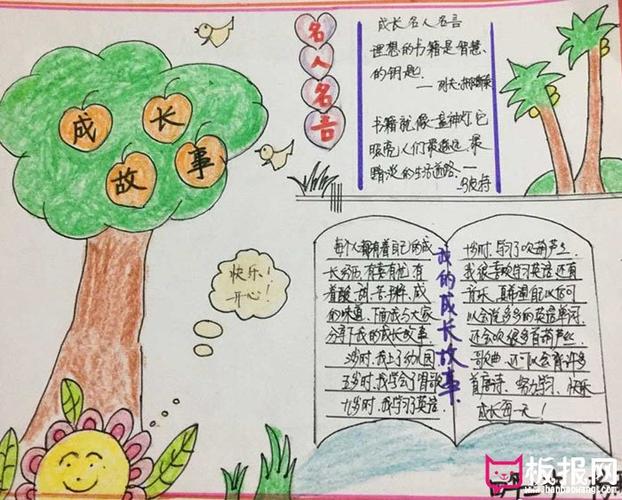 成长故事
名人名言
成长名人名言
理想的书籍是智慧
的钥匙
书籍就像一盏神灯,它
照亮人们最遥远、最
暗淡的生活道路
快乐!
开心!
我的成长故事
每个人都有着自己的成
长经历,有喜有忧,有
着酸、甜、苦、辣、咸
的味道,下面我与大家
分享下我的成长故事。
3岁时,我上了幼儿园
五岁时,我学会了唱歌
九岁时,我学习了英语
十岁时,学习了吹葫芦丝。
我很喜欢学习英语还有
音乐,真希望自己以后可
以会说多多的英语单词,
还会吹很多首葫芦丝
歌曲,还可以会背许多
首唐诗,努力学习,快乐
成长每一天!
板报网